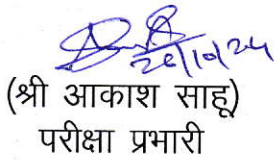 26/10/24
(श्री आकाश साहू)
परीक्षा प्रभारी